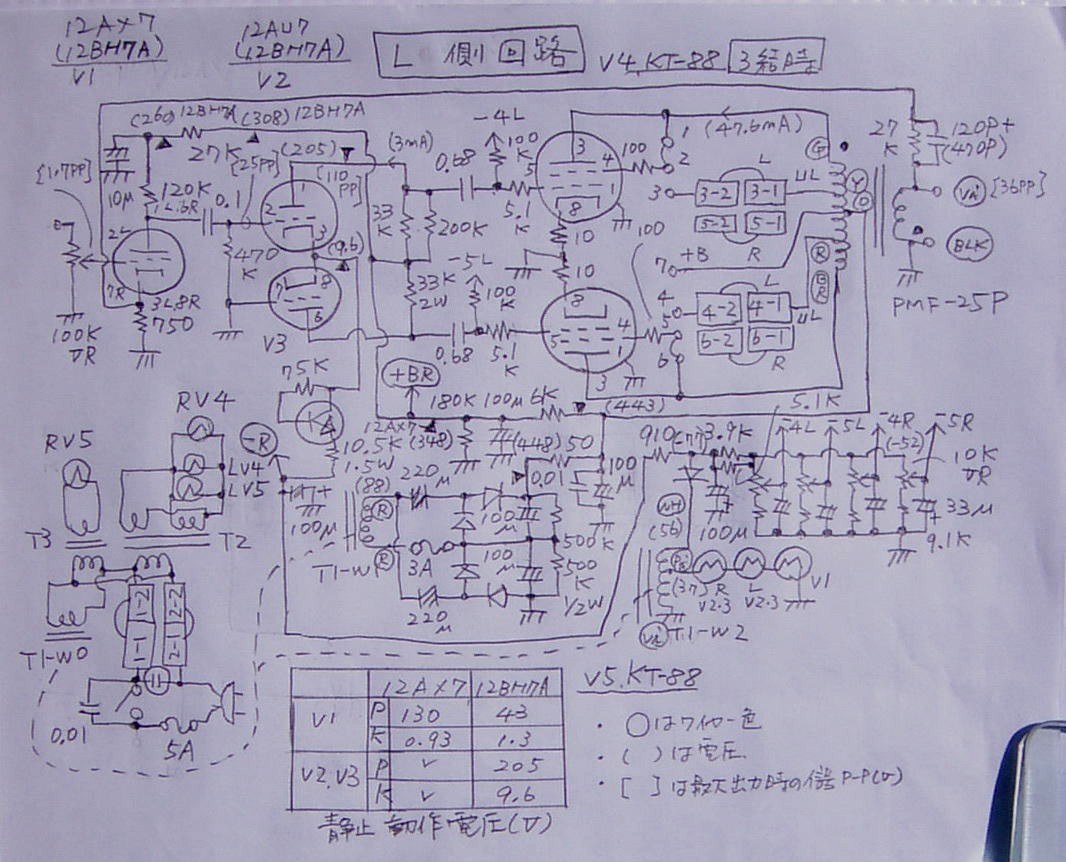 12AX7
(12BH7A)
V1
12AU7
(12BH7A)
V2
L 側回路
V4,KT-88 3結時
(260) 12BH7A (308) 12BH7A
27K
[1.7PP]
10μ
120K
1L.6R
0.1
[25PP]
(205)
[110
PP]
(3mA)
0.68
-4L
100
K
5.1
K
33
K
200K
33K
2W
-5L
100
K
0.68
5.1
K
2L
7R
3L.8R
750
100K
VR
470
K
(9.6)
V3
1
2
3
7
8
6
3
4
5
1
8
100
10
10
100
8
5
4
1
3
1
2
3
7
+B
4
5
6
(47.6mA)
L
3-2
3-1
5-2
5-1
R
UL
L
4-2
4-1
6-2
6-1
R
UL
G
Y
O
R
BR
27
K
120P+
(470P)
[36PP]
BLK
PMF-25P
75K
+BR
180K
100μ
6K
(443)
12AX7
(348)
(448)
50
0.01
100
μ
10.5K
1.5W
(88)
-R
147+
100μ
T1-W1
R
R
3A
220
μ
220
μ
100
μ
100
μ
500
K
500
K
1/2W
RV4
RV5
LV4
LV5
T3
T2
T1-W0
1-2
1-1
2-2
2-1
0.01
5A
910
(77)
3.9K
5.1K
-4L
-5L
-4R
(-52)
-5R
10K
VR
33μ
9.1K
100μ
WH
(56)
(37)
R
V2.3
L
V2.3
V1
T1-W2
12AX7 12BH7A
V1 P 130 43
K 0.93 1.3
V2,V3 P v 205
K v 9.6
静止動作電圧(V)
V5,KT-88
・○はワイヤー色
・( )は電圧
・[ ]は最大出力時の信号P-P(V)